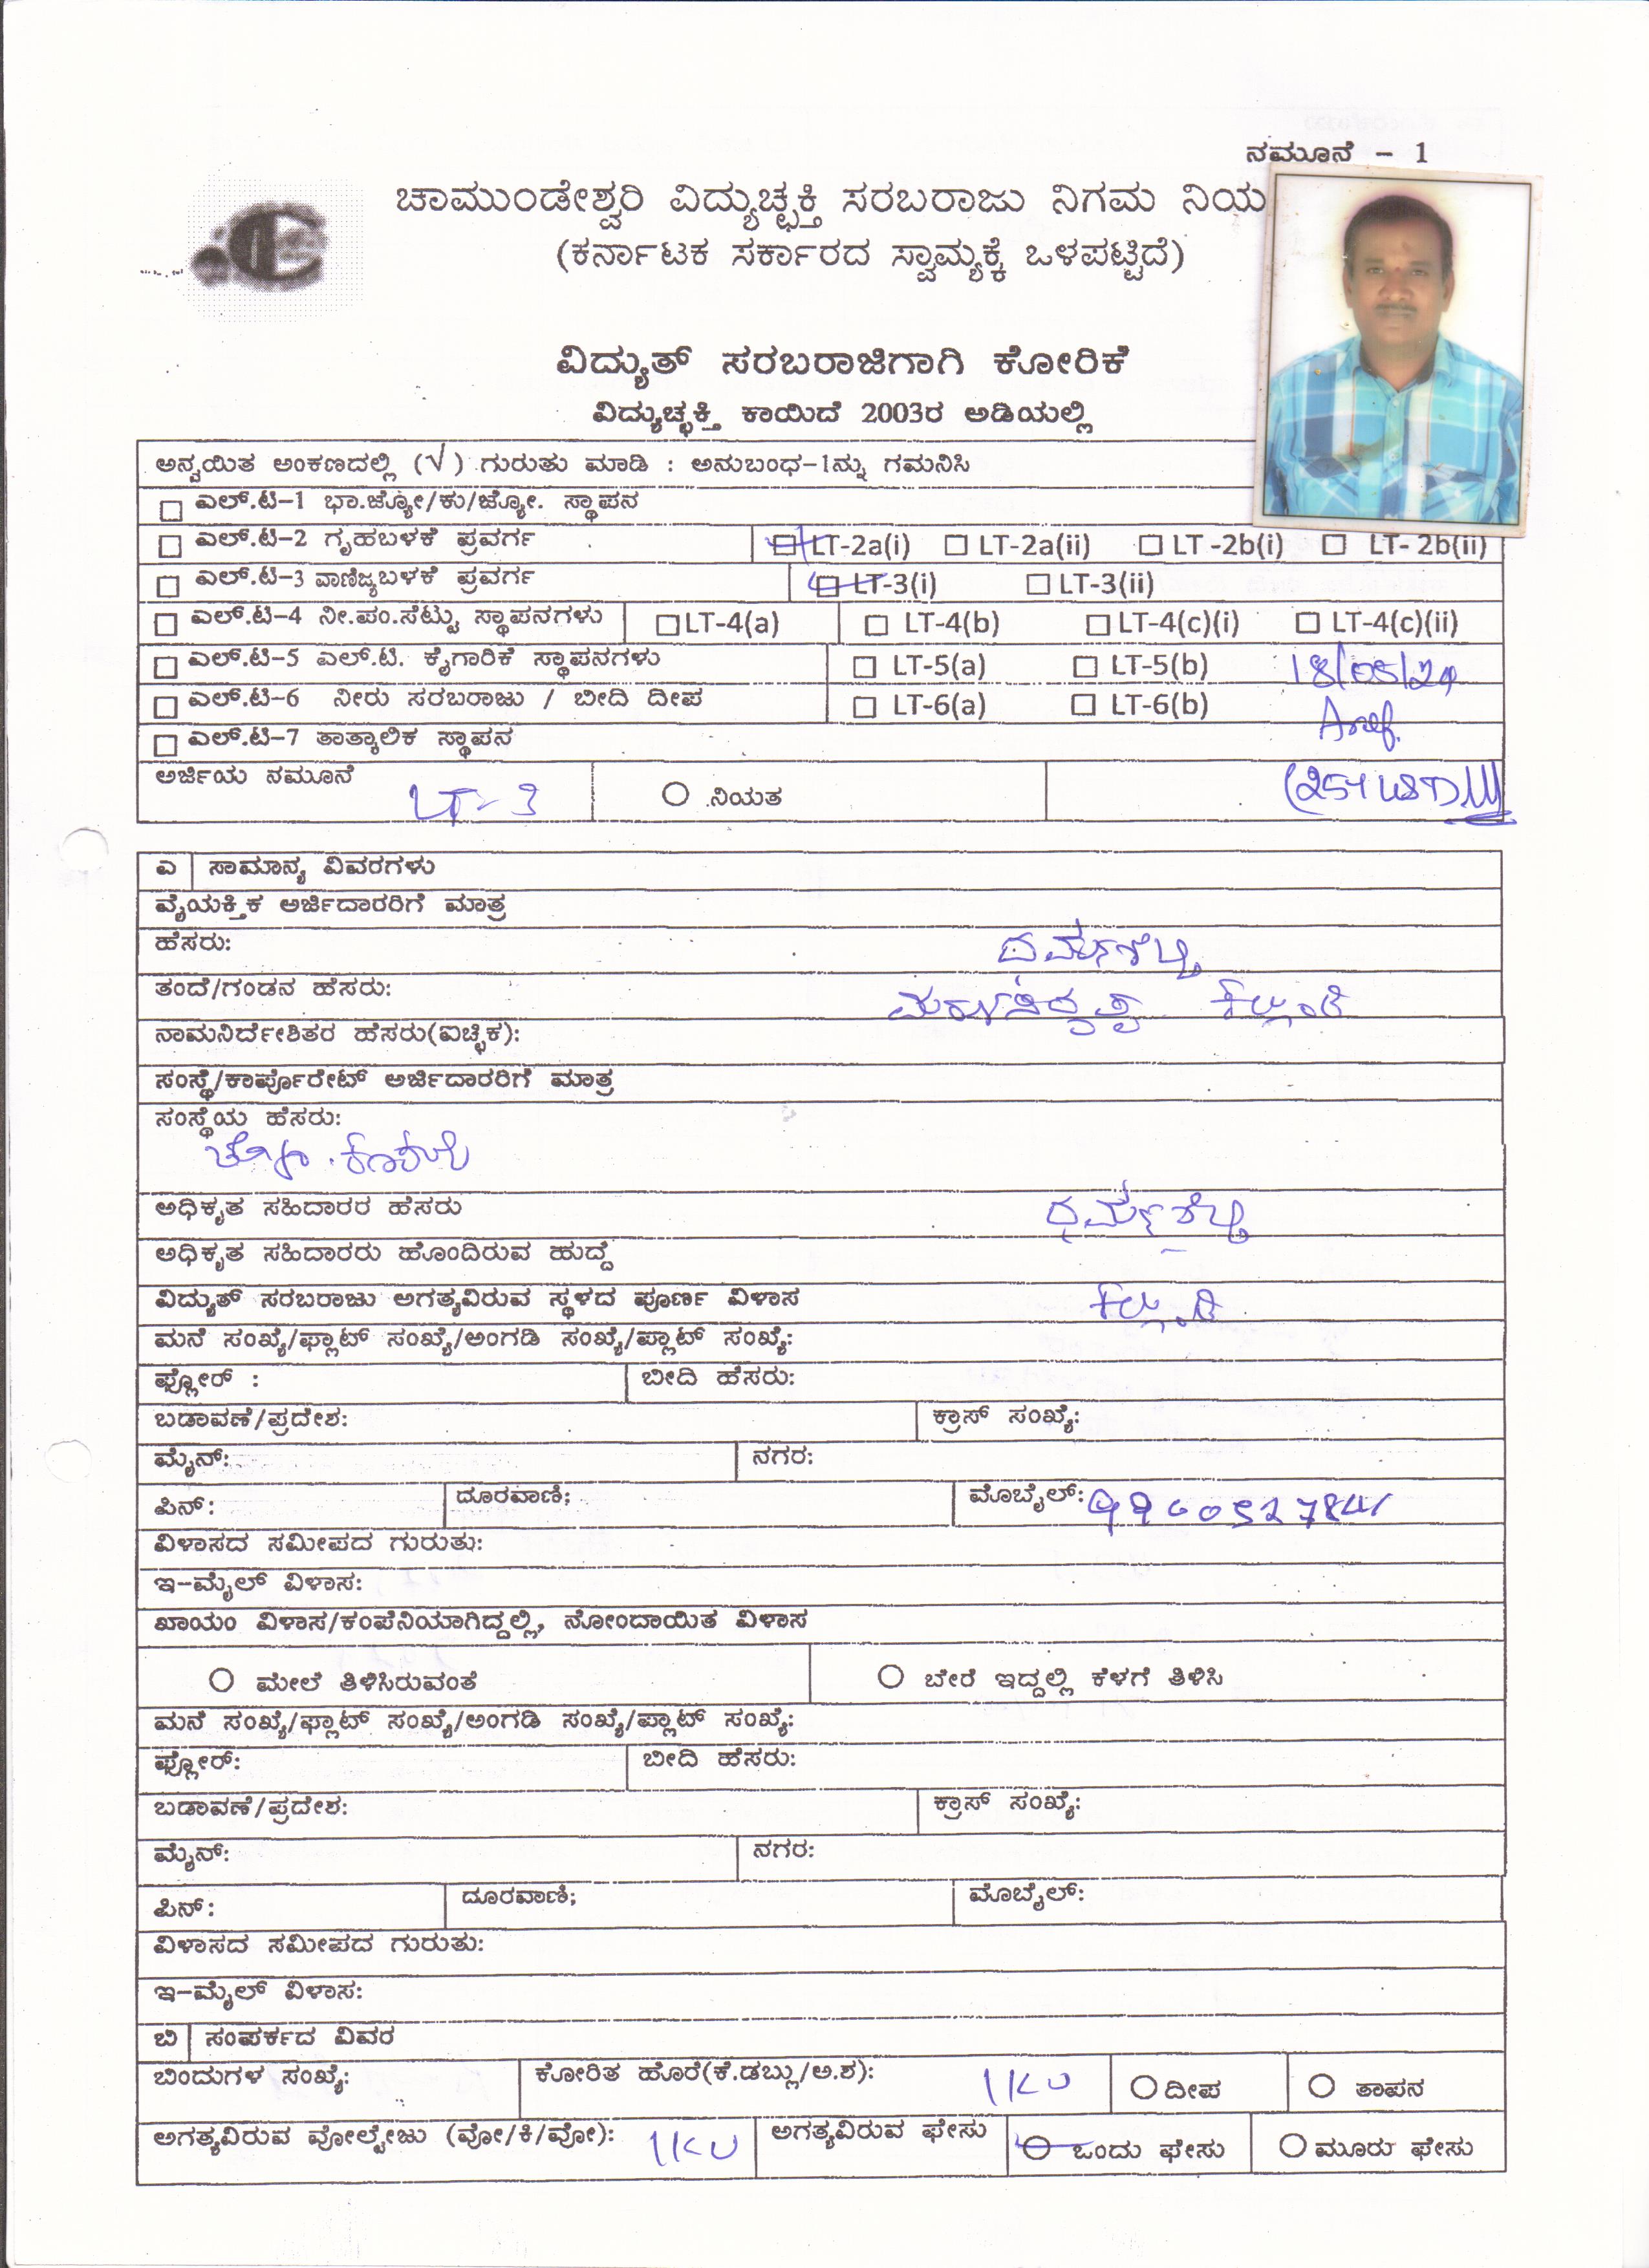 ನಮೂನೆ - 1
ಚಾಮುಂಡೇಶ್ವರಿ ವಿದ್ಯುಚ್ಛಕ್ತಿ ಸರಬರಾಜು ನಿಗಮ ನಿಯ
(ಕರ್ನಾಟಕ ಸರ್ಕಾರದ ಸ್ವಾಮ್ಯಕ್ಕೆ ಒಳಪಟ್ಟಿದೆ)
ವಿದ್ಯುತ್ ಸರಬರಾಜಿಗಾಗಿ ಕೋರಿಕೆ
ವಿದ್ಯುಚ್ಛಕ್ತಿ ಕಾಯಿದೆ 2003ರ ಅಡಿಯಲ್ಲಿ
ಅನ್ವಯಿತ ಅಂಕಣದಲ್ಲಿ (√) ಗುರುತು ಮಾಡಿ : ಅನುಬಂಧ-1ನ್ನು ಗಮನಿಸಿ
ಎಲ್.ಟಿ-1 ಭಾ.ಜ್ಯೋ/ಕು/ಜ್ಯೋ. ಸ್ಥಾಪನ
ಎಲ್.ಟಿ-2 ಗೃಹಬಳಕೆ ಪ್ರವರ್ಗ LT-2a(i) LT-2a(ii) LT -2b(i) LT- 2b(ii)
ಎಲ್.ಟಿ-3 ವಾಣಿಜ್ಯಬಳಕೆ ಪ್ರವರ್ಗ LT-3(i) LT-3(ii)
ಎಲ್.ಟಿ-4 ನೀ.ಪಂ.ಸೆಟ್ಟು ಸ್ಥಾಪನಗಳು LT-4(a) LT-4(b) LT-4(c)(i) LT-4(c)(ii)
ಎಲ್.ಟಿ-5 ಎಲ್.ಟಿ. ಕೈಗಾರಿಕೆ ಸ್ಥಾಪನಗಳು LT-5(a) LT-5(b) 18/05/24
ಎಲ್.ಟಿ-6 ನೀರು ಸರಬರಾಜು / ಬೀದಿ ದೀಪ LT-6(a) LT-6(b)
ಎಲ್.ಟಿ-7 ತಾತ್ಕಾಲಿಕ ಸ್ಥಾಪನ
ಅರ್ಜಿಯ ನಮೂನೆ LT-3 ನಿಯತ
ಎ ಸಾಮಾನ್ಯ ವಿವರಗಳು
ವೈಯಕ್ತಿಕ ಅರ್ಜಿದಾರರಿಗೆ ಮಾತ್ರ
ಹೆಸರು: ಧರ್ಮಶೆಟ್ಟಿ
ತಂದೆ/ಗಂಡನ ಹೆಸರು:
ನಾಮನಿರ್ದೇಶಿತರ ಹೆಸರು(ಐಚ್ಛಿಕ):
ಸಂಸ್ಥೆ/ಕಾರ್ಪೊರೇಟ್ ಅರ್ಜಿದಾರರಿಗೆ ಮಾತ್ರ
ಸಂಸ್ಥೆಯ ಹೆಸರು:
ಅಧಿಕೃತ ಸಹಿದಾರರ ಹೆಸರು ಧರ್ಮಶೆಟ್ಟಿ
ಅಧಿಕೃತ ಸಹಿದಾರರು ಹೊಂದಿರುವ ಹುದ್ದೆ
ವಿದ್ಯುತ್ ಸರಬರಾಜು ಅಗತ್ಯವಿರುವ ಸ್ಥಳದ ಪೂರ್ಣ ವಿಳಾಸ
ಮನೆ ಸಂಖ್ಯೆ/ಫ್ಲಾಟ್ ಸಂಖ್ಯೆ/ಅಂಗಡಿ ಸಂಖ್ಯೆ/ಪ್ಲಾಟ್ ಸಂಖ್ಯೆ:
ಫ್ಲೋರ್ : ಬೀದಿ ಹೆಸರು:
ಬಡಾವಣೆ/ಪ್ರದೇಶ: ಕ್ರಾಸ್ ಸಂಖ್ಯೆ:
ಮೈನ್: ನಗರ:
ಪಿನ್: ದೂರವಾಣಿ; ಮೊಬೈಲ್:
ವಿಳಾಸದ ಸಮೀಪದ ಗುರುತು:
ಇ-ಮೈಲ್ ವಿಳಾಸ:
ಖಾಯಂ ವಿಳಾಸ/ಕಂಪೆನಿಯಾಗಿದ್ದಲ್ಲಿ, ನೋಂದಾಯಿತ ವಿಳಾಸ
ಮೇಲೆ ತಿಳಿಸಿರುವಂತೆ ಬೇರೆ ಇದ್ದಲ್ಲಿ ಕೆಳಗೆ ತಿಳಿಸಿ
ಮನೆ ಸಂಖ್ಯೆ/ಫ್ಲಾಟ್ ಸಂಖ್ಯೆ/ಅಂಗಡಿ ಸಂಖ್ಯೆ/ಪ್ಲಾಟ್ ಸಂಖ್ಯೆ:
ಫ್ಲೋರ್: ಬೀದಿ ಹೆಸರು:
ಬಡಾವಣೆ/ಪ್ರದೇಶ: ಕ್ರಾಸ್ ಸಂಖ್ಯೆ:
ಮೈನ್: ನಗರ:
ಪಿನ್: ದೂರವಾಣಿ; ಮೊಬೈಲ್:
ವಿಳಾಸದ ಸಮೀಪದ ಗುರುತು:
ಇ-ಮೈಲ್ ವಿಳಾಸ:
ಬಿ ಸಂಪರ್ಕದ ವಿವರ
ಬಿಂದುಗಳ ಸಂಖ್ಯೆ: ಕೋರಿತ ಹೊರೆ(ಕೆ.ಡಬ್ಲು/ಅ.ಶ): 1KV ದೀಪ ತಾಪನ
ಅಗತ್ಯವಿರುವ ವೋಲ್ಟೇಜು (ವೋ/ಕಿ/ವೋ): 1KV ಅಗತ್ಯವಿರುವ ಫೇಸು ಒಂದು ಫೇಸು ಮೂರು ಫೇಸು